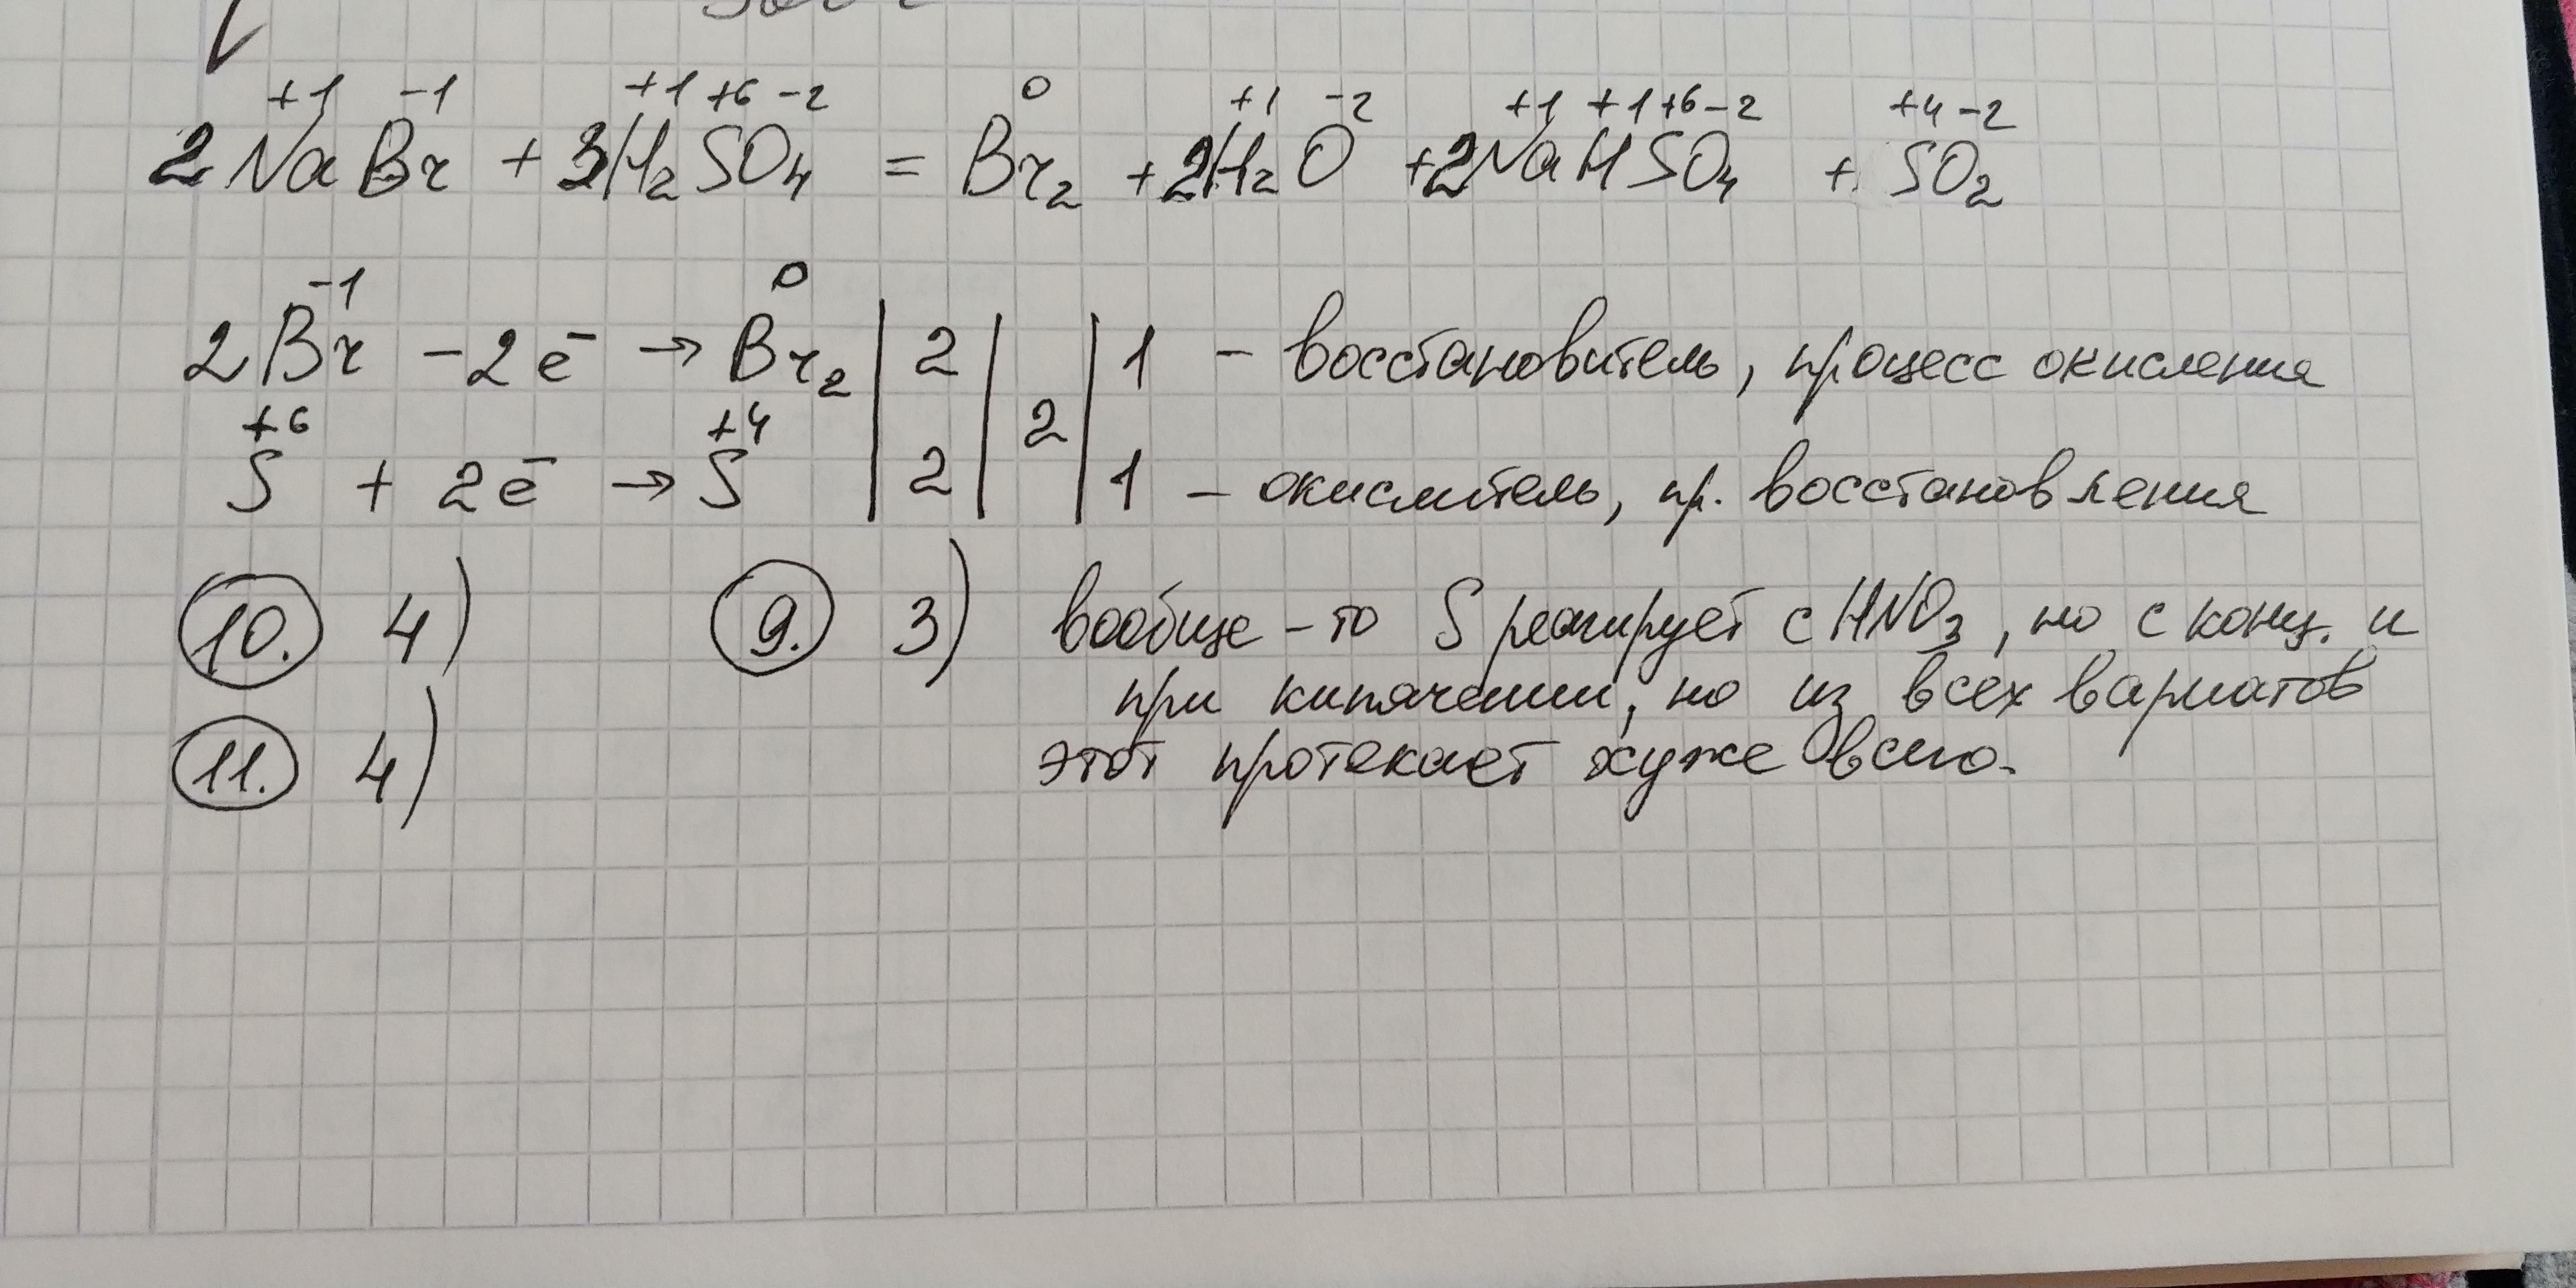 +1 -1 +1 +6 -2 0 +1 -2 +1 +1 +6 -2 +4 -2
2NaBr + 3H₂SO₄ = Br₂ + 2H₂O + 2NaHSO₄ + SO₂
-1 0
2Br - 2e⁻ → Br₂ | 2 | | 1 - восстановитель, процесс окисления
+6 +4 2
S + 2e⁻ → S | 2 | | 1 - окислитель, пр. восстановления
10. 4) 9. 3) вообще-то S реагирует с HNO₃, но с конц. и
при кипячении, но из всех вариатов
11. 4) этот протекает хуже всего.